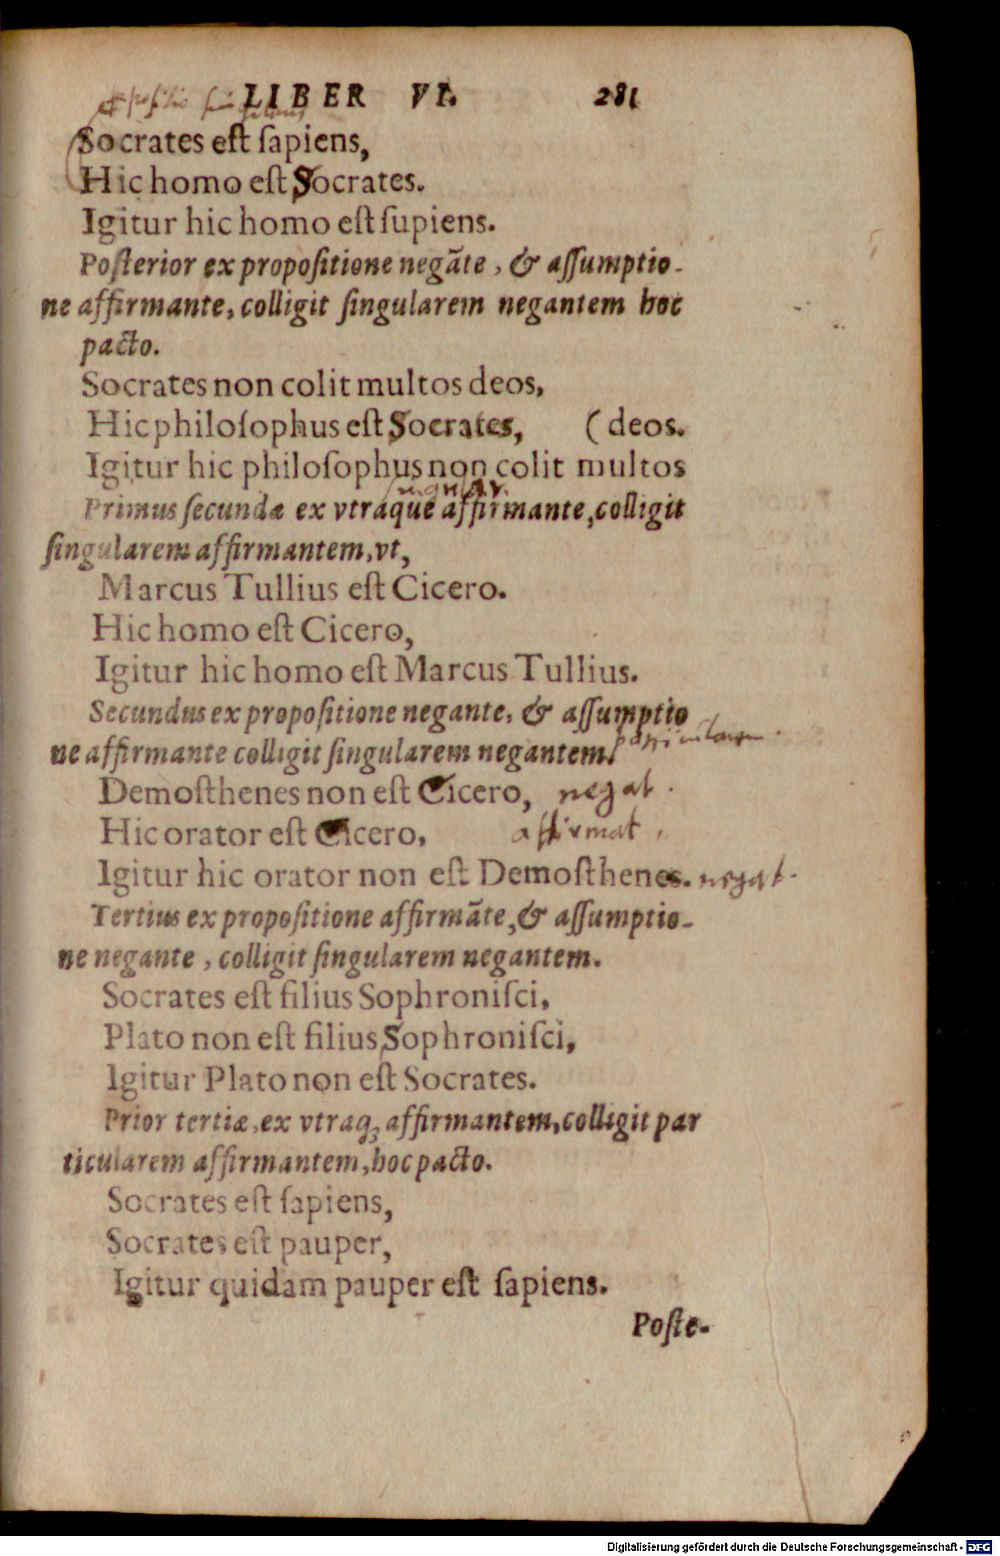 LIBER VI. 281
Socrates eſt ſapiens,
Hic homo eſt Socrates.
Igitur hic homo eſt ſupiens.
Poſterior ex propoſitione negāte, & aſſumptio-
ne affirmante, colligit ſingularem negantem hoc
pacto.
Socrates non colit multos deos,
Hic philoſophus eſt Socrates, (deos.
Igitur hic philoſophus non colit multos
Primus ſecundæ ex vtraque affirmante, colligit
ſingularem affirmantem, vt,
Marcus Tullius eſt Cicero.
Hic homo eſt Cicero,
Igitur hic homo eſt Marcus Tullius.
Secundus ex propoſitione negante, & aſſumptio
ne affirmante colligit ſingularem negantem.
Demoſthenes non eſt Cicero, negat.
Hic orator eſt Cicero. affirmat.
Igitur hic orator non eſt Demoſthenes. negat.
Tertius ex propoſitione affirmāte, & aſſumptio-
ne negante, colligit ſingularem negantem.
Socrates eſt filius Sophroniſci,
Plato non eſt filius Sophroniſci,
Igitur Plato non eſt Socrates.
Prior tertiæ, ex vtraq; affirmantem, colligit par
ticularem affirmantem, hoc pacto.
Socrates eſt ſapiens,
Socrates eſt pauper,
Igitur quidam pauper eſt ſapiens.
Poſte-
Digitalisierung gefördert durch die Deutsche Forschungsgemeinschaft - DFG